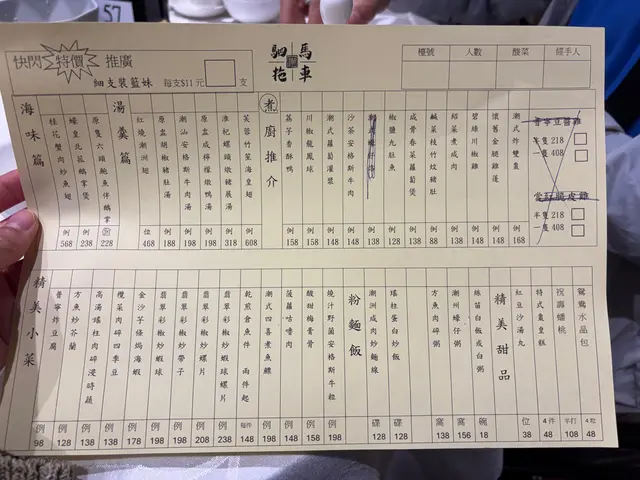 57
快閃 特價 推廣
細支裝藍妹 每支$11元 支
駟馬拖車
檯號 人數 酸菜 經手人
海味篇
桂花蟹肉炒魚翅 例 568
蠔皇北菇鵝掌煲 例 238
原隻六頭鮑魚伴鵝掌 228
湯羹篇
紅燒潮洲翅 位 468
原盅胡椒豬肚湯 例 188
潮汕安格斯牛肉湯 例 198
原盅咸檸檬燉鴨湯 例 198
淮杞螺頭燉豬展湯 例 318
芙蓉竹笙海皇翅 例 608
煮廚推介
荔芋香酥鴨 例 158
川椒龍鳳球 例 158
潮式蘿蔔灌漿 例 148
沙茶安格斯牛肉 例 148
例 138
椒鹽九肚魚 例 128
咸骨春菜蘿蔔煲 例 138
鹹菜枝竹炆豬肚 例 88
紹菜煮咸肉 例 138
碧綠川椒雞 例 148
懷舊金腿雞蓬 例 148
潮式炸雙棗 例 168
普寧豆醬雞
半隻 218
一隻 408
脆皮雞
半隻 218
一隻 408
精美小菜
普寧炸豆腐 例 98
方魚炒芥蘭 例 128
高湯瑤柱肉碎浸時蔬 例 138
欖菜肉碎四季豆 例 138
金沙芋條焗海蝦 例 178
翡翠彩椒炒蝦球 例 198
翡翠彩椒炒帶子 例 198
翡翠彩椒炒螺片 例 208
翡翠彩椒炒蝦球螺片 例 238
乾煎倉魚件 兩件起 每件 148
潮式四喜煮魚鰾 例 198
菠蘿咕嚕肉 例 148
酸甜梅膏骨 例 158
燒汁野菌安格斯牛粒 例 198
粉麵飯
潮洲咸肉炒麵線 碟 128
瑤柱蛋白炒飯 碟 128
方魚肉碎粥 窩 138
潮州蠔仔粥 窩 156
絲苗白飯或白粥 碗 18
精美甜品
紅豆沙湯丸 位 38
特式棗皇糕 4件 48
祝壽蟠桃 半打 108
鴛鴦水晶包 4粒 48